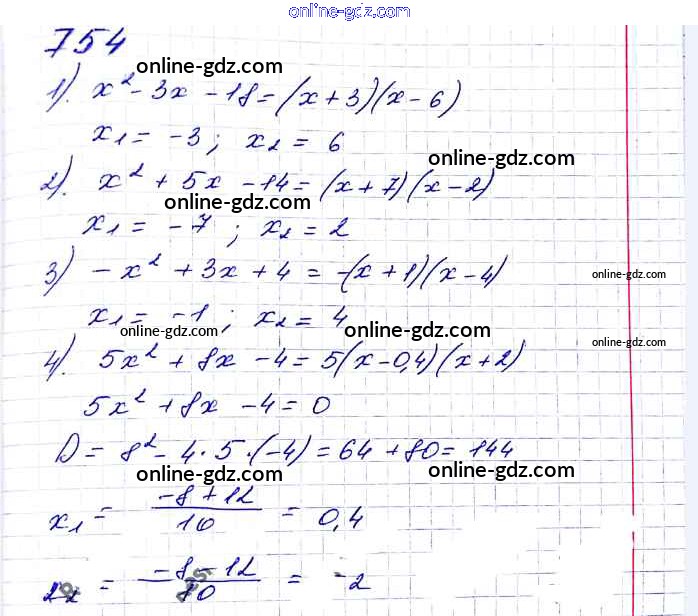 online-gdz.com
754
online-gdz.com
1). x² - 3x - 18 = (x + 3)(x - 6)
x₁ = -3; x₂ = 6
online-gdz.com
2). x² + 5x - 14 = (x + 7)(x - 2)
online-gdz.com
x₁ = -7; x₂ = 2
3) -x² + 3x + 4 = -(x + 1)(x - 4)
online-gdz.com
x₁ = -1; x₂ = 4
online-gdz.com online-gdz.com
online-gdz.com
4). 5x² + 8x - 4 = 5(x - 0,4)(x + 2)
5x² + 8x - 4 = 0
D = 8² - 4·5·(-4) = 64 + 80 = 144
online-gdz.com online-gdz.com
x₁ = (-8 + 12)/10 = 0,4
x₂ = (-8 - 12)/10 = -2